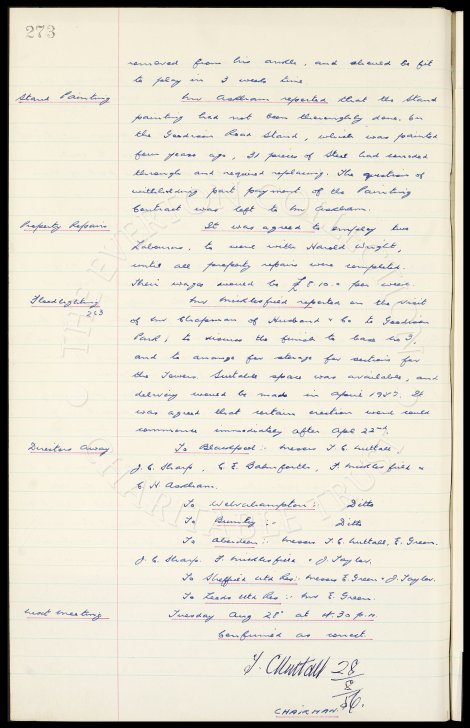 273
removed from his ankle, and should be fit
to play in 3 weeks time
Stand Painting
Mr Askham reported that the Stand
painting had not been thoroughly done. On
the Goodison Road Stand, which was painted
four years ago, 21 pieces of Steel had corroded
through and required replacing. The question of
withholding part payment of the Painting
Contract was left to Mr Askham.
Property Repairs
It was agreed to employ two
Labourers, to work with Harold Wright,
until all property repairs were completed.
Their wages would be £8.10.0 per week.
Floodlighting
263
Mr Micklesfield reported on the visit
of Mr Chapman of Husband & Co to Goodison
Park, to discuss the finish to base No 3,
and to arrange for storage for sections for
the Towers. Suitable space was available, and
delivery would be made in April 1957. It
was agreed that certain erection work could
commence immediately after Apl 22nd
Directors Away
To Blackpool:- Messrs T. C. Nuttall,
J. C. Sharp, C. E. Balmforth, F. Micklesfield &
C. H Askham.
To Wolverhampton:- Ditto
To Burnley:- Ditto
To Aberdeen:- Messrs T. C. Nuttall, E. Green.
J. C. Sharp. F. Micklesfield & J. Taylor.
To Sheffield Utd Res: Messrs E Green & J. Taylor.
To Leeds Utd Res:- Mr E. Green.
Next Meeting
Tuesday Aug 28th at 4.30 p.m.
Confirmed as correct
T. C Nuttall 28/8/56.
CHAIRMAN.
THE EVERTON COLLECTION
CHARITABLE TRUST